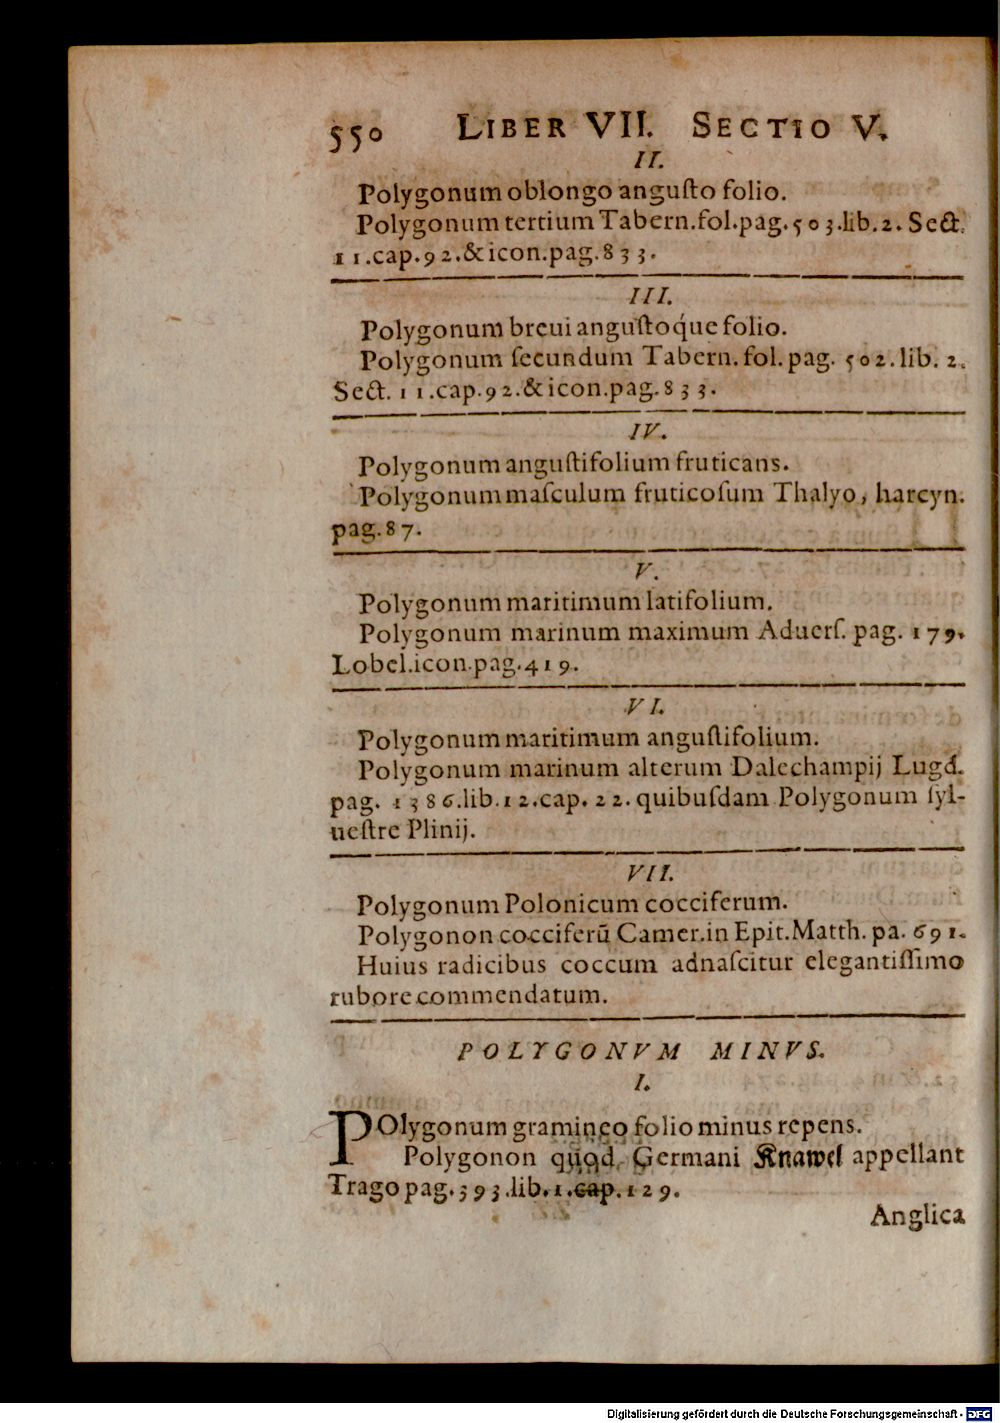 550 LIBER VII. SECTIO V.
II.
Polygonum oblongo anguſto folio.
Polygonum tertium Tabern.fol.pag.503.lib.2. Sect.
11.cap.92.&icon.pag.833.
III.
Polygonum breui anguſtoq́ue folio.
Polygonum ſecundum Tabern. fol. pag. 502.lib. 2.
Sect. 11.cap.92.&icon.pag.833.
IV.
Polygonum anguſtifolium fruticans.
Polygonum maſculum fruticoſum Thalyo, harcyn.
pag.87.
V.
Polygonum maritimum latifolium.
Polygonum marinum maximum Aduerſ. pag. 179.
Lobel.icon.pag.419.
VI.
Polygonum maritimum anguſtifolium.
Polygonum marinum alterum Dalechampij Lugd.
pag. 1386.lib.12.cap. 22. quibuſdam Polygonum ſyl-
ueſtre Plinij.
VII.
Polygonum Polonicum cocciferum.
Polygonon cocciferū Camer.in Epit.Matth. pa. 691.
Huius radicibus coccum adnaſcitur elegantiſſimo
rubore commendatum.
POLYGONVM MINVS.
I.
POlygonum gramineo folio minus repens.
Polygonon quod Germani Knawel appellant
Trago pag.393.lib.1.cap.129.
Anglica
Digitalisierung gefördert durch die Deutsche Forschungsgemeinschaft - DFG